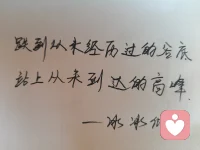 跌到从未经历过的谷底
站上从来到达的高峰
—冰冰